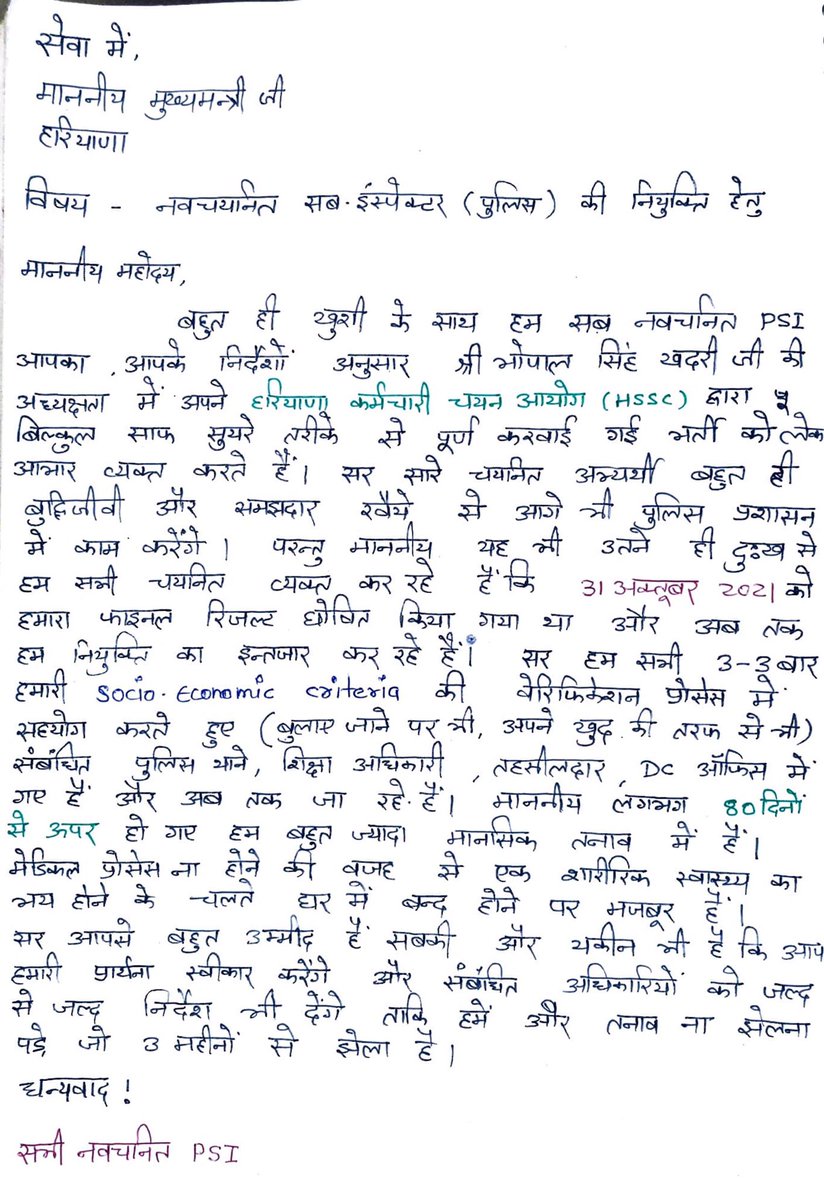 सेवा में,
माननीय मुख्यमन्त्री जी
हरियाणा
विषय - नवचयनित सब-इंस्पेक्टर (पुलिस) की नियुक्ति हेतु
माननीय महोदय,
बहुत ही खुशी के साथ हम सब नवचनित PSI
आपका , आपके निर्देशों अनुसार श्री भोपाल सिंह खदरी जी की
अध्यक्षता में अपने हरियाणा कर्मचारी चयन आयोग (HSSC) द्वारा
बिल्कुल साफ सुथरे तरीके से पूर्ण करवाई गई भर्ती को लेक
आभार व्यक्त करते हैं। सर सारे चयनित अभ्यर्थी बहुत ही
बुद्धिजीवी और समझदार रवैये से आगे भी पुलिस प्रशासन
में काम करेंगे। परन्तु माननीय यह भी उतने ही दुःख से
हम सभी चयनित व्यक्त कर रहे हैं कि 31 अक्तूबर 2021 को
हमारा फाइनल रिजल्ट घोषित किया गया था और अब तक
हम नियुक्ति का इन्तजार कर रहे हैं। सर हम सभी 3-3 बार
हमारी Socio-Economic criteria की वेरिफिकेशन प्रोसेस में
सहयोग करते हुए (बुलाए जाने पर भी, अपने खुद की तरफ से भी)
संबंधित पुलिस थाने, शिक्षा अधिकारी , तहसीलदार, DC ऑफिस में
गए हैं और अब तक जा रहे हैं। माननीय लगभग 80 दिनों
से ऊपर हो गए हम बहुत ज्यादा मानसिक तनाव में हैं।
मेडिकल प्रोसेस ना होने की वजह से एक शारीरिक स्वास्थ्य का
भय होने के चलते घर में बन्द होने पर मजबूर हैं।
सर आपसे बहुत उम्मीद हैं सबकी और यकीन भी है कि आप
हमारी प्रार्थना स्वीकार करेंगे और संबंधित अधिकारियों को जल्द
से जल्द निर्देश भी देंगे ताकि हमें और तनाव ना झेलना
पड़े जो 3 महीनों से झेला है।
धन्यवाद !
सभी नवचनित PSI